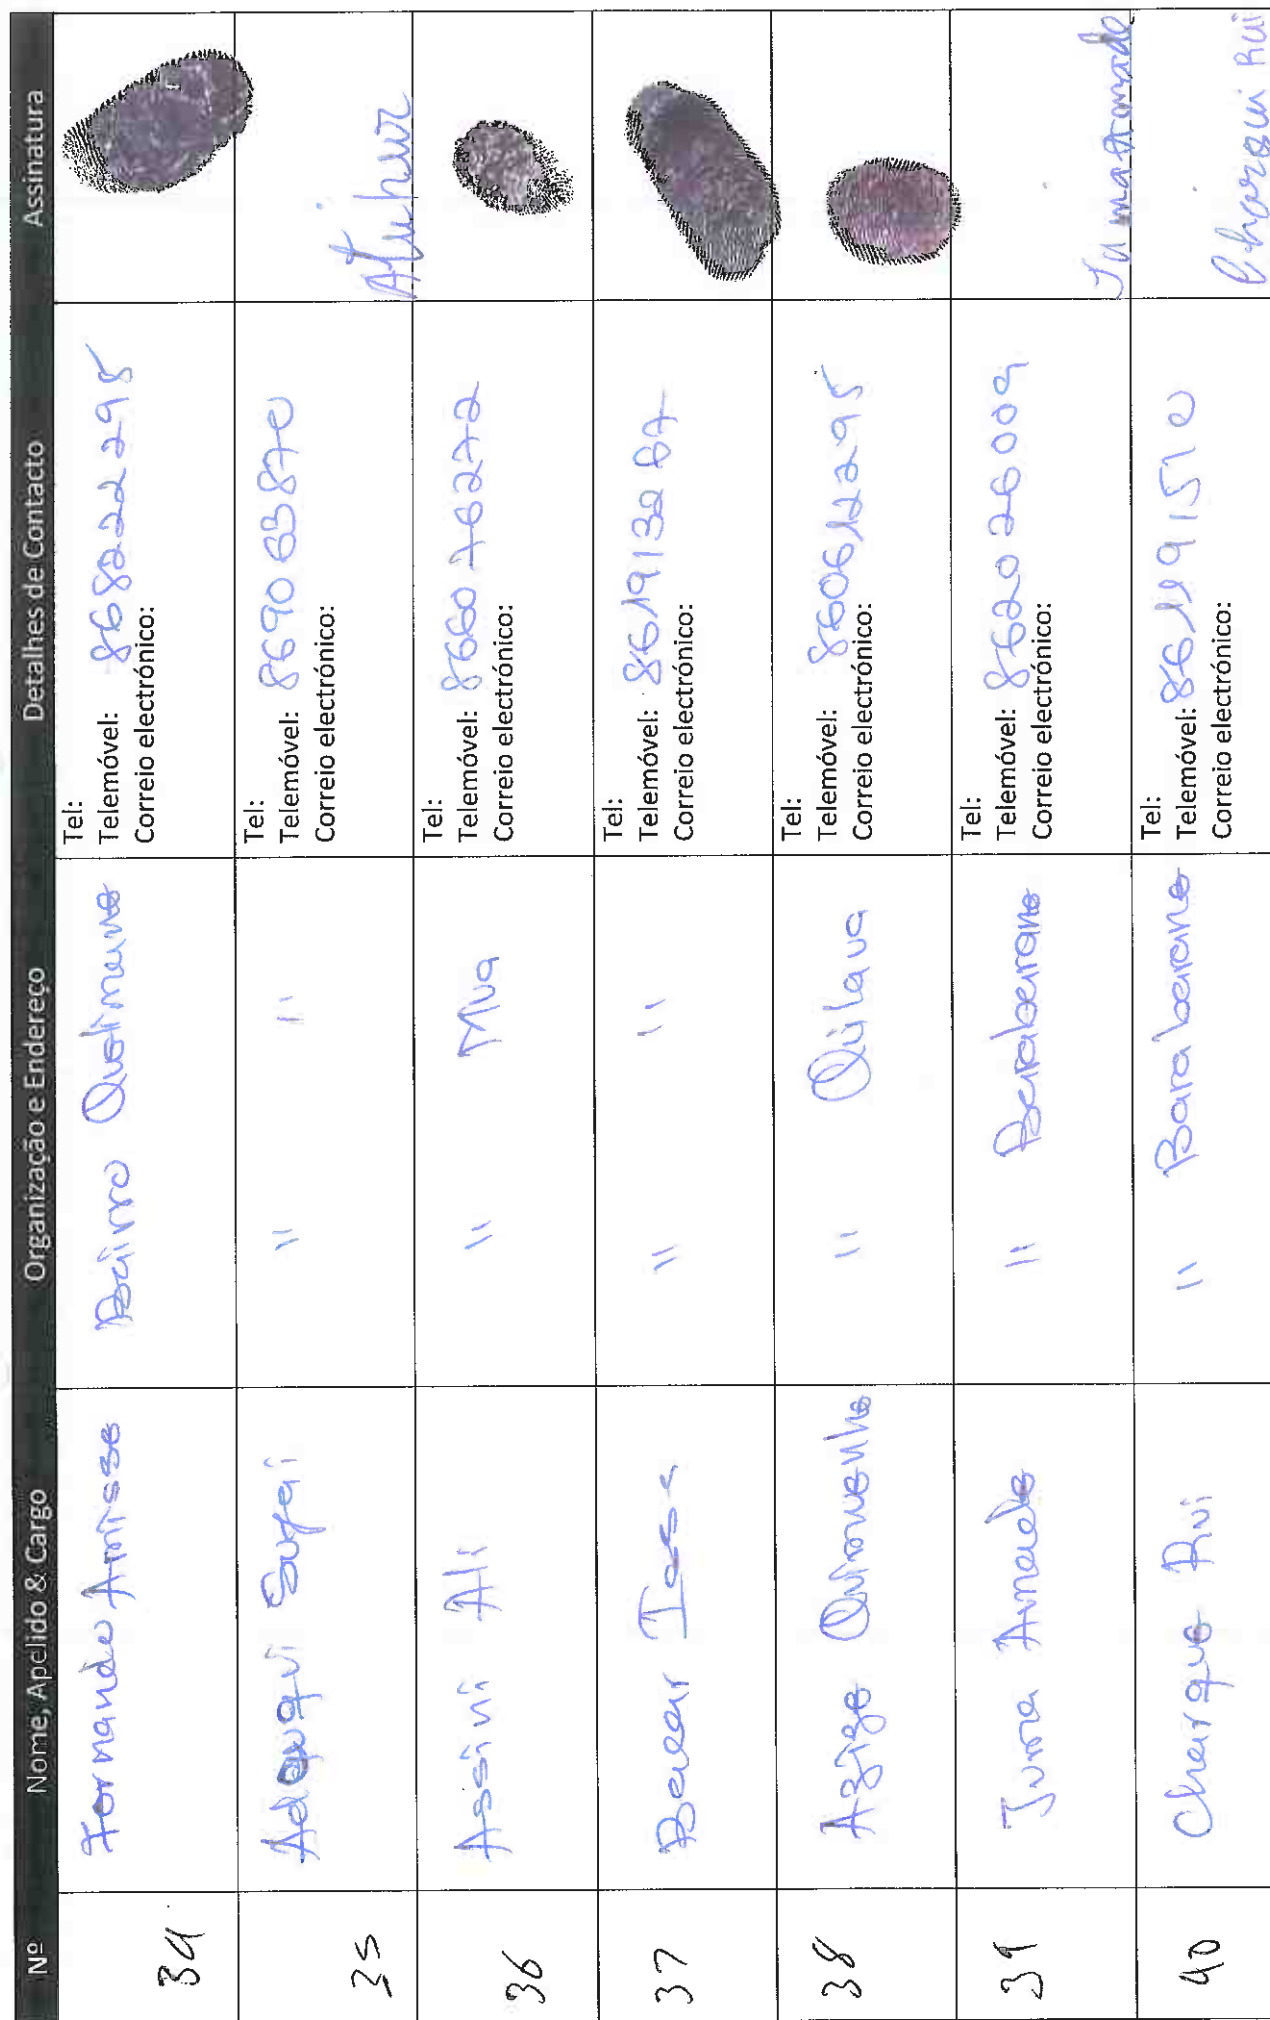 Nº Nome, Apelido & Cargo Organização e Endereço Detalhes de Contacto Assinatura
34 Fernando Amisse Bairro Quelimane Tel:
Telemóvel: 868222295
Correio electrónico:
35 Sufai " " Tel:
Telemóvel: 869063870
Correio electrónico:
36 Assini Ali " Mua Tel:
Telemóvel: 866076272
Correio electrónico:
37 Bacar " " Tel:
Telemóvel: 861913267
Correio electrónico:
38 Azize " Quilaua Tel:
Telemóvel: 860612295
Correio electrónico:
39 Juma Amade " Barabarane Tel:
Telemóvel: 862026009
Correio electrónico:
40 Charque Rui " Barabarane Tel:
Telemóvel: 861191510
Correio electrónico: